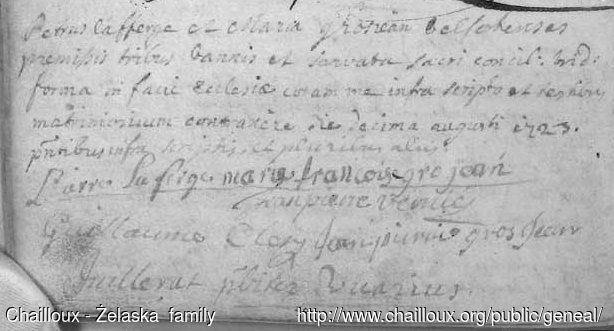 Petrus Lafferge et Maria grosjean
premissis tribus bannis et servata sacri concil: trid:
forma in facie Ecclesiæ coram me infra scripto et testibus
matrimonium contraxere die decima augusti 1723.
pntibus infra scriptis et pluribus aliis
Pierre Laferge marie françois grojean
Janpierre
Guillaume Clery Janpierre grosjean
Juillerat pbiter Vicarius
Chailloux - Żelaska family http://www.chailloux.org/public/geneal/